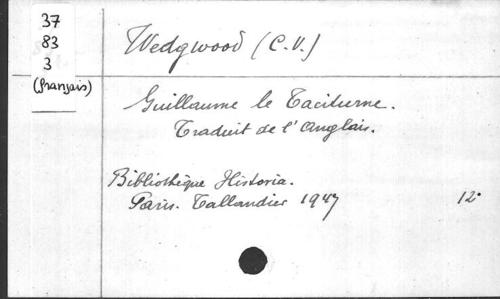 37
83
3
(français)
Wedgwood (C.V.)
Guillaume le Taciturne.
Traduit de l'Anglais.
Bibliothèque Historia.
Paris. Tallandier 1947 12°